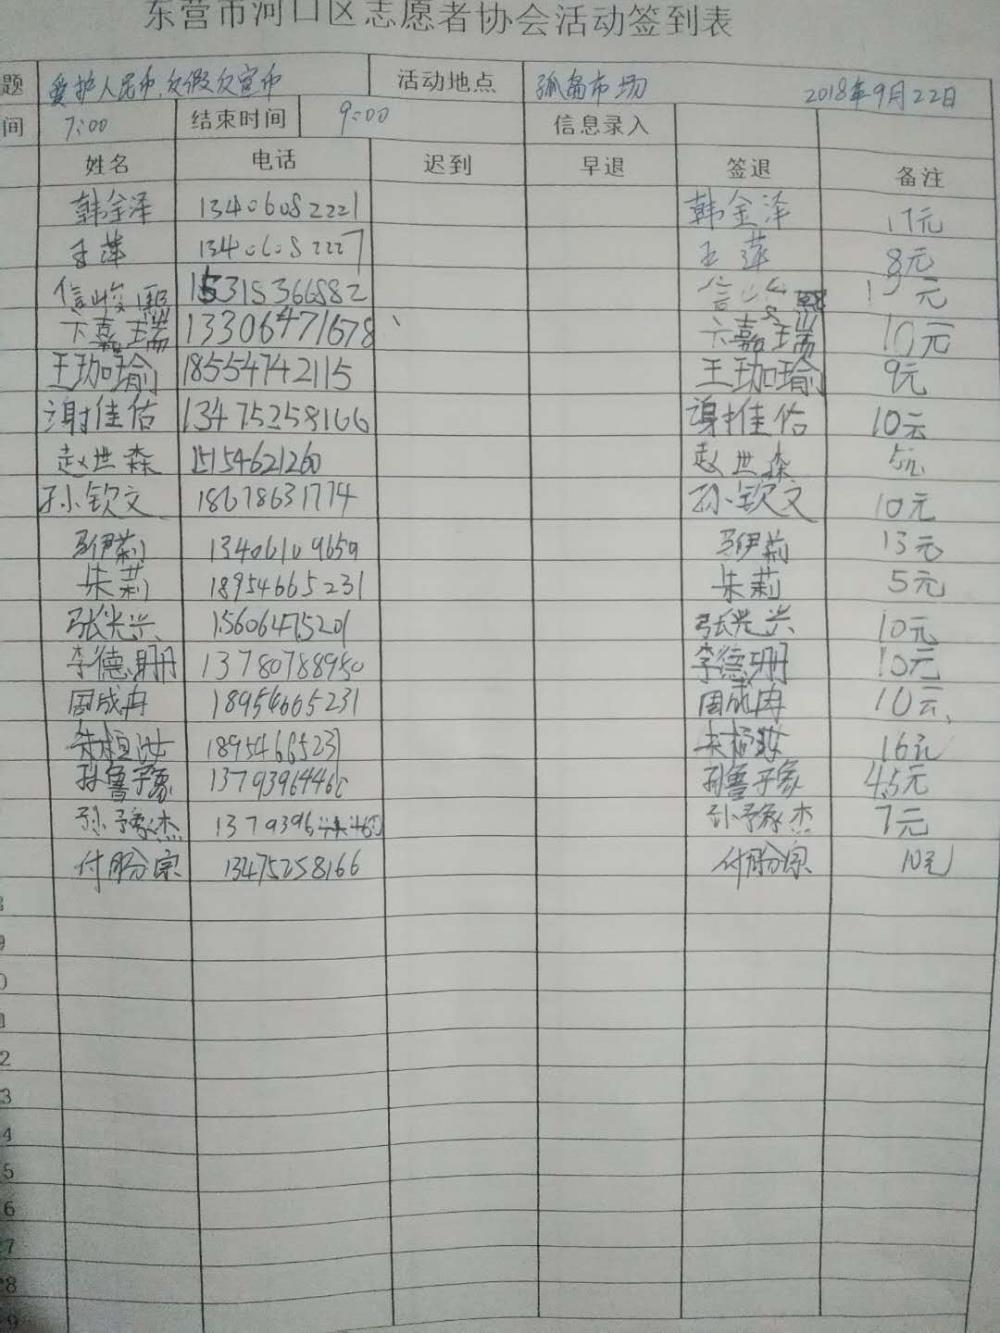 东营市河口区志愿者协会活动签到表
题 爱护人民币,反假反宣币 活动地点 孤岛市场 2018年9月22日
间 7:00 结束时间 9:00 信息录入
姓名 电话 迟到 早退 签退 备注
韩金泽 13406082221 韩金泽 17元
王萍 13406082227 王萍 8元
信峻熙 15315366882 元
卞嘉瑞 13306471678 卞嘉瑞 10元
王珈瑜 18554742115 王珈瑜 9元
谢佳佑 13475258166 谢佳佑 10元
赵世森 15154621260 赵世森 5元
孙钦文 18678631774 孙钦文 10元
马伊莉 13406109659 马伊莉 13元
朱莉 18954665231 朱莉 5元
张光兴 15606475201 张光兴 10元
李德珊 13780788950 李德珊 10元
周成冉 18954665231 周成冉 10元
朱桓汝 18954665231 朱桓汝 16元
孙鲁豫 13793964460 孙鲁豫 4.5元
孙豫杰 孙豫杰 7元
付盼宗 13475258166 付盼宗 10元
9
0
2
3
4
5
6
7
8
9